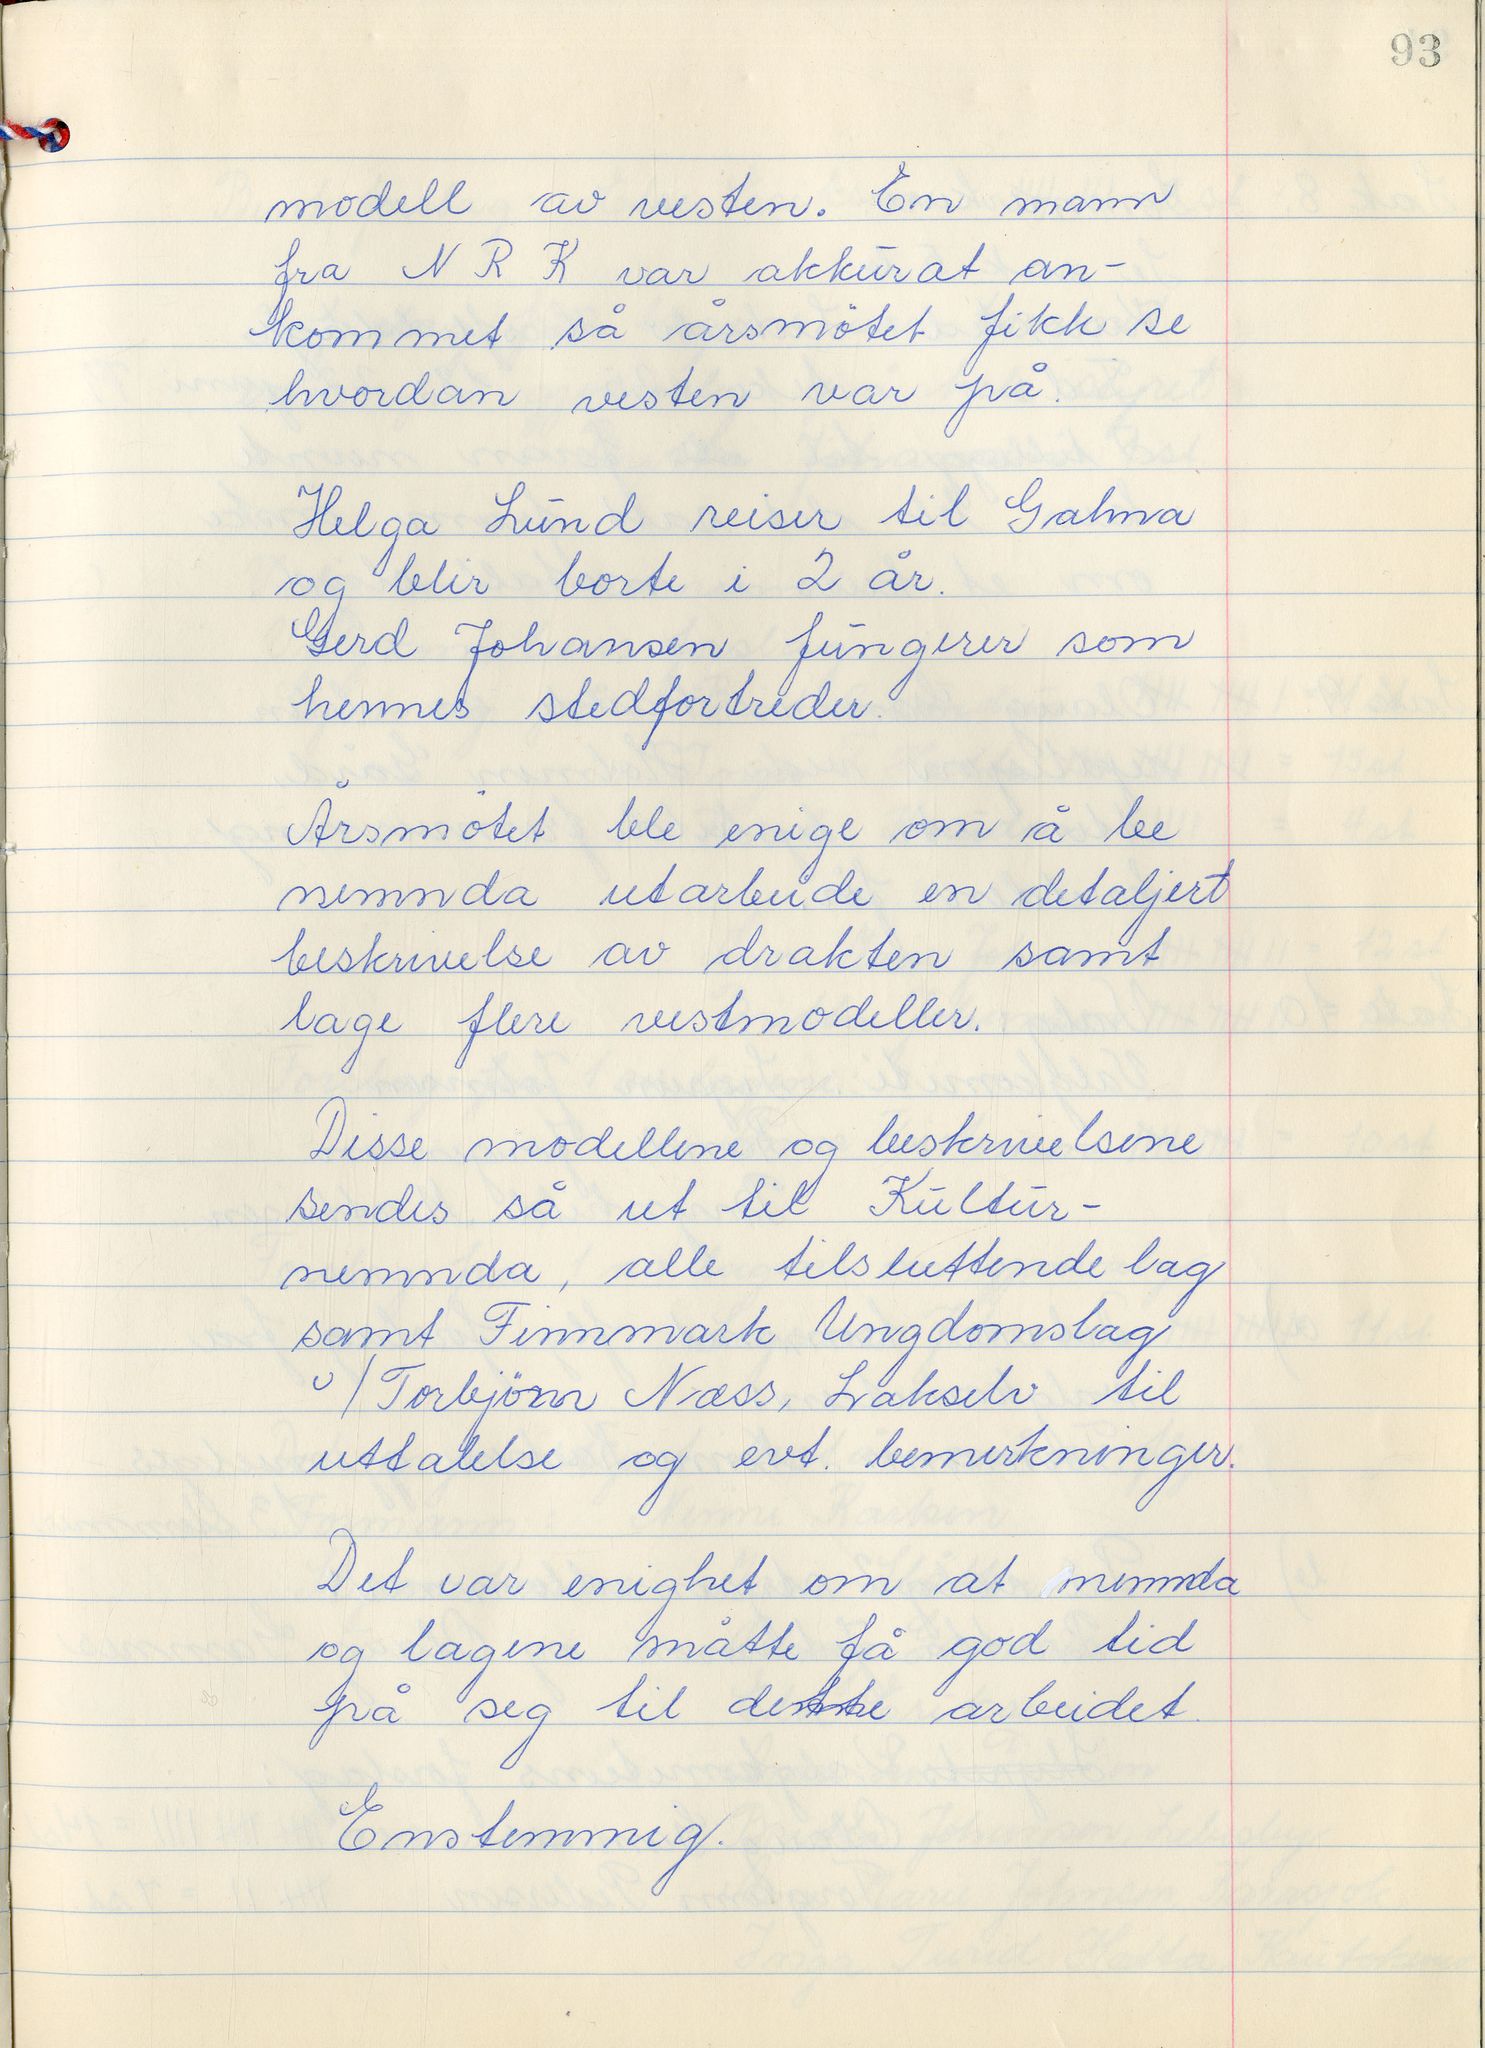 93
modell av vesten. En mann
fra N R K var akkurat an-
kommet så årsmötet fikk se
hvordan vesten var på.
Helga Lund reiser til Gahna
og blir borte i 2 år.
Gerd Johansen fungerer som
hennes stedfortreder.
Årsmötet ble enige om å be
nemnda utarbeide en detaljert
beskrivelse av drakten samt
lage flere vestmodeller.
Disse modellene og beskrivelsene
sendes så ut til Kultur-
nemnda, alle tilsluttende lag
samt Finnmark Ungdomslag
v/Torbjörn Næss, Lakselv til
uttalelse og evt. bemerkninger.
Det var enighet om at nemnda
og lagene måtte få god tid
på seg til dette arbeidet.
Enstemmig.